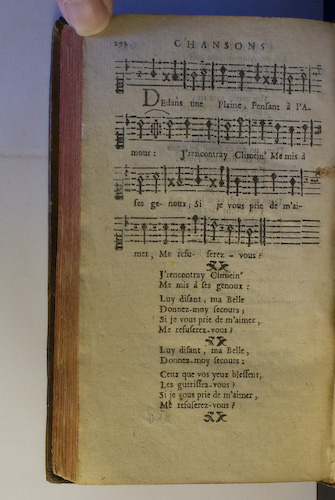 202 CHANSONS
DEdans une Plaine, Pensant à l'A-
mour: J'rencontray Climein' Me mis à
ses ge- noux; Si je vous prie de m'ai-
mer, Me refu- serez - vous?
J'rencontray Climein'
Me mis à ses genoux:
Luy disant, ma Belle
Donnez-moy secours;
Si je vous prie de m'aimer,
Me refuserez-vous?
Luy disant, ma Belle,
Donnez-moy secours:
Ceux que vos yeux blessent,
Les guerissez-vous?
Si je vous prie de m'aimer,
Me refuserez-vous?